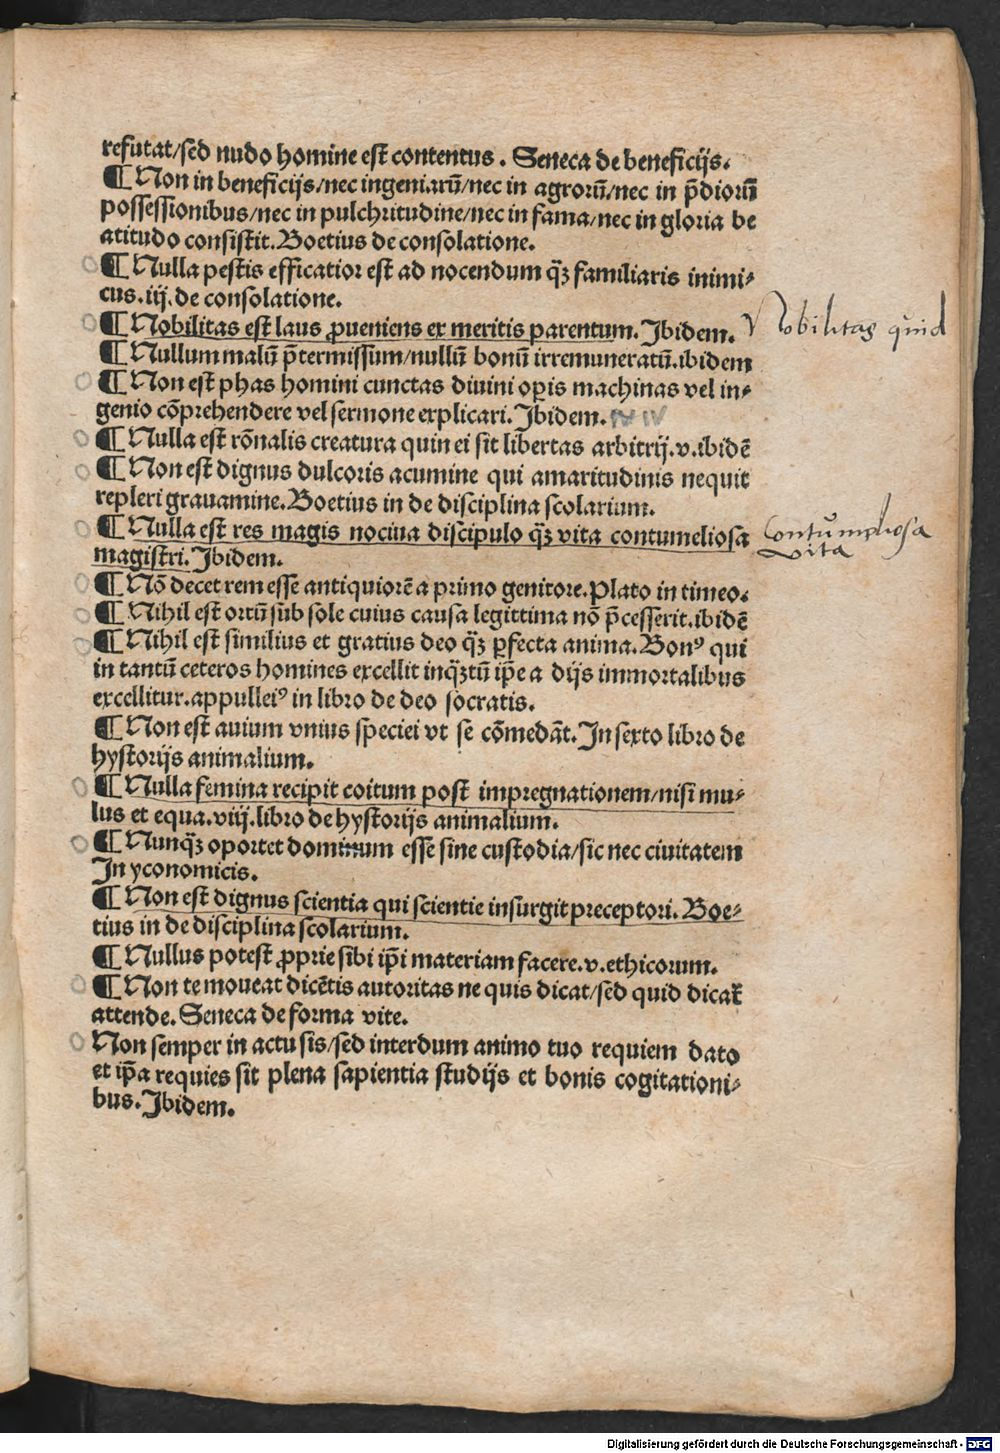 refutat/sed nudo homine est contentus. Seneca de beneficijs.
¶ Non in beneficijs/nec ingeniarū/nec in agrorū/nec in p̄diorū
possessionibus/nec in pulchritudine/nec in fama/nec in gloria be
atitudo consistit. Boetius de consolatione.
¶ Nulla pestis efficatior est ad nocendum q̄ꝫ familiaris inimi⸗
cus. iij. de consolatione.
¶ Nobilitas est laus ꝓueniens ex meritis parentum. Ibidem.
Nobilitas quid
¶ Nullum malū p̄termissum/nullū bonū irremuneratū. ibidem
¶ Non est phas homini cunctas diuini oꝑis machinas vel in⸗
genio cōprehendere vel sermone explicari. Ibidem. IV IV
¶ Nulla est rōnalis creatura quin ei sit libertas arbitrij. v. ibidē
¶ Non est dignus dulcoris acumine qui amaritudinis nequit
repleri grauamine. Boetius in de disciplina scolarium.
¶ Nulla est res magis nociua discipulo q̄ꝫ vita contumeliosa
magistri. Ibidem.
vita
¶ Nō decet rem esse antiquiorē a primo genitore. Plato in timeo.
¶ Nihil est ortū sub sole cuius causa legittima nō p̄cesserit. ibidē
¶ Nihil est similius et gratius deo q̄ꝫ ꝑfecta anima. Bonꝰ qui
in tantū ceteros homines excellit inq̄ꝫtū ip̄e a dijs immortalibus
excellitur. appulleiꝰ in libro de deo socratis.
¶ Non est auium vnius speciei vt se cōmedāt. In sexto libro de
hystorijs animalium.
¶ Nulla femina recipit coitum post impregnationem/nisi mu⸗
lus et equa. viij. libro de hystorijs animalium.
¶ Nunq̄ꝫ oportet dominum esse sine custodia/sic nec ciuitatem
In yconomicis.
¶ Non est dignus scientia qui scientie insurgit preceptori. Boe⸗
tius in de disciplina scolarium.
¶ Nullus potest ꝓprie sibi ip̄i materiam facere. v. ethicorum.
¶ Non te moueat dicētis autoritas ne quis dicat/sed quid dicat
attende. Seneca de forma vite.
Non semper in actu sis/sed interdum animo tuo requiem dato
et ip̄a requies sit plena sapientia studijs et bonis cogitationi⸗
bus. Ibidem.
Digitalisierung gefördert durch die Deutsche Forschungsgemeinschaft - DFG